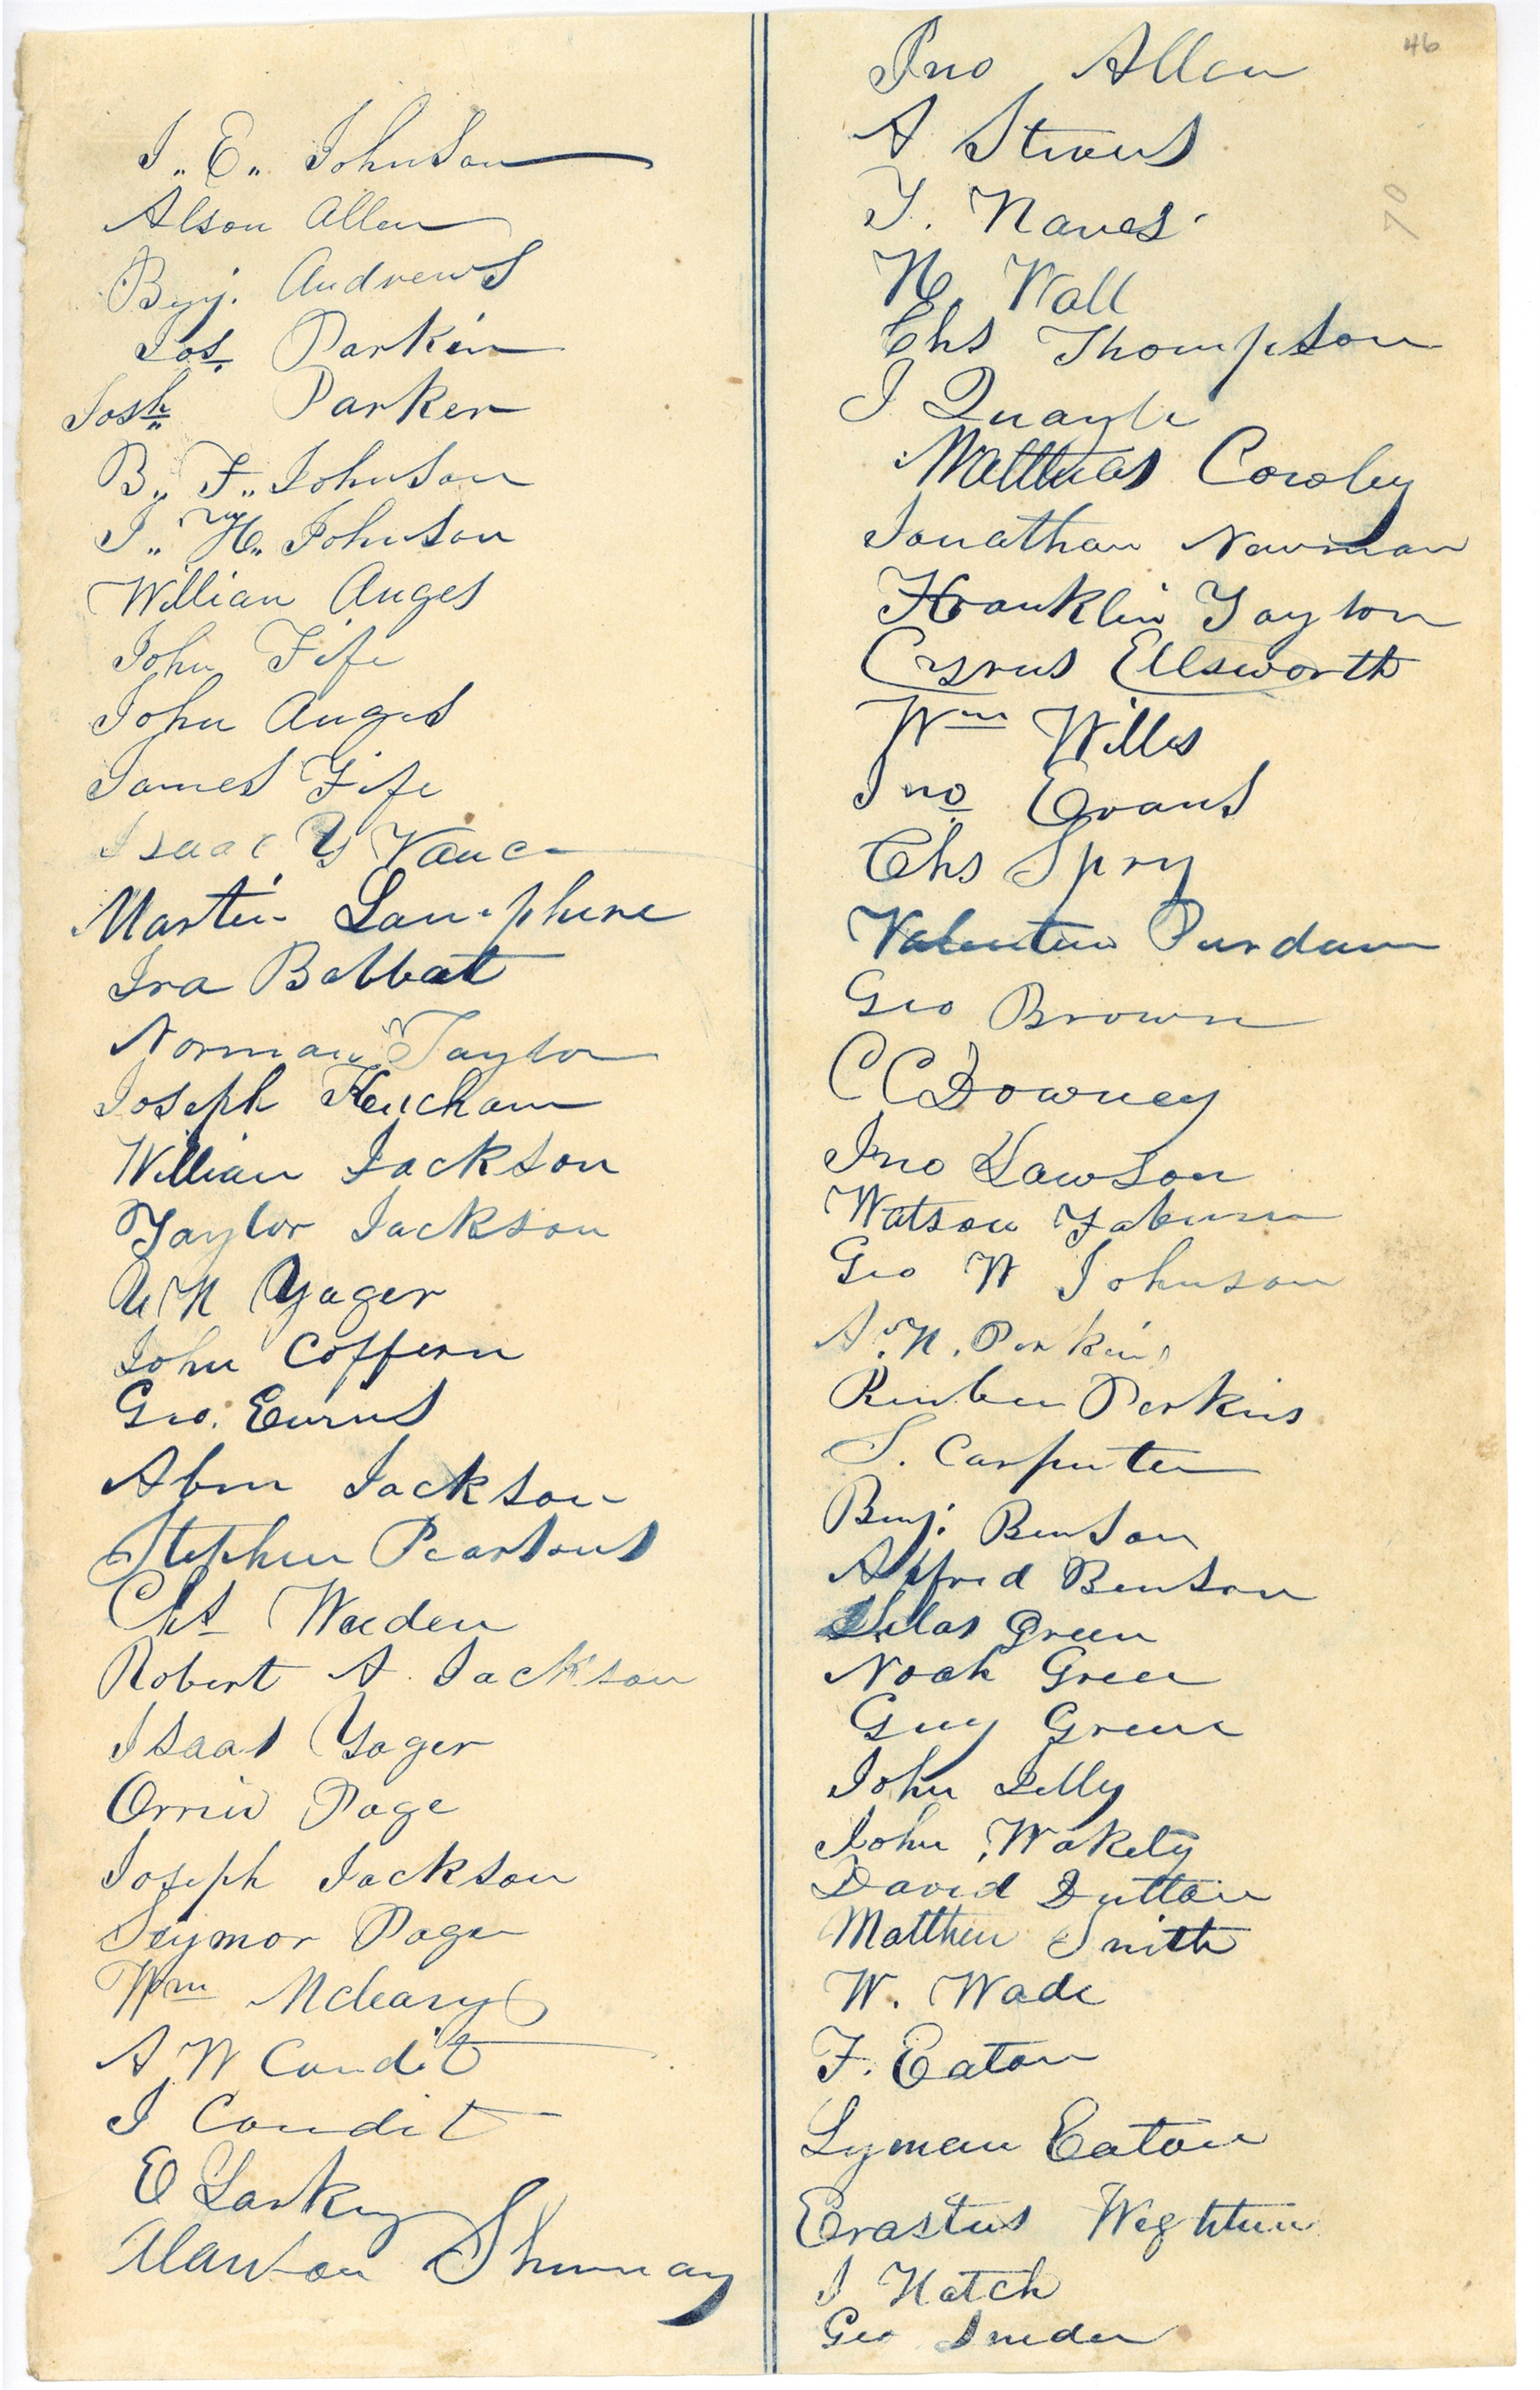 J. E. Johnson
Alson Allen
Benj. Andrews
Jos. Parkin
Josh Parker
B. F. Johnson
J. W. Johnson
Willian Anges
John Fife
John Anges
James Fife
Isaac Y Vance
Martin Lamphere
Ira Babbat
Norman Taylor
Joseph Ketcham
William Jackson
Taylor Jackson
A N Yager
John Coffern
Geo. Eurus
Abm Jackson
Stephen Pearsons
Chs Weeden
Robert A. Jackson
Isaas Yager
Orrin Page
Joseph Jackson
Seymor Page
Wm Mcleary
A W Condit
J Condit
E Larkey
Shumway
46
Jno Allen
A Straus
T. Naves
Wall
Chs Thompson
J Quayle
Matthias Cowley
Jonathan Newman
Franklin Taylor
Cyrus Ellsworth
Wm Willes
Jno Evans
Chs Spry
70
Valentine Purdum
Geo Brown
C C Downey
Jno Lawson
Watson
Geo W Johnson
A. N. Perkins
Reuben Perkins
S. Carpenter
Benj. Benson
Alfred Benson
Silas Green
Noah Green
Guy Green
John Lilly
John Wakely
David Dutton
Matthew Smith
W. Wade
F. Eaton
Lyman Eaton
Erastus Wightman
J Hatch
Geo Snider